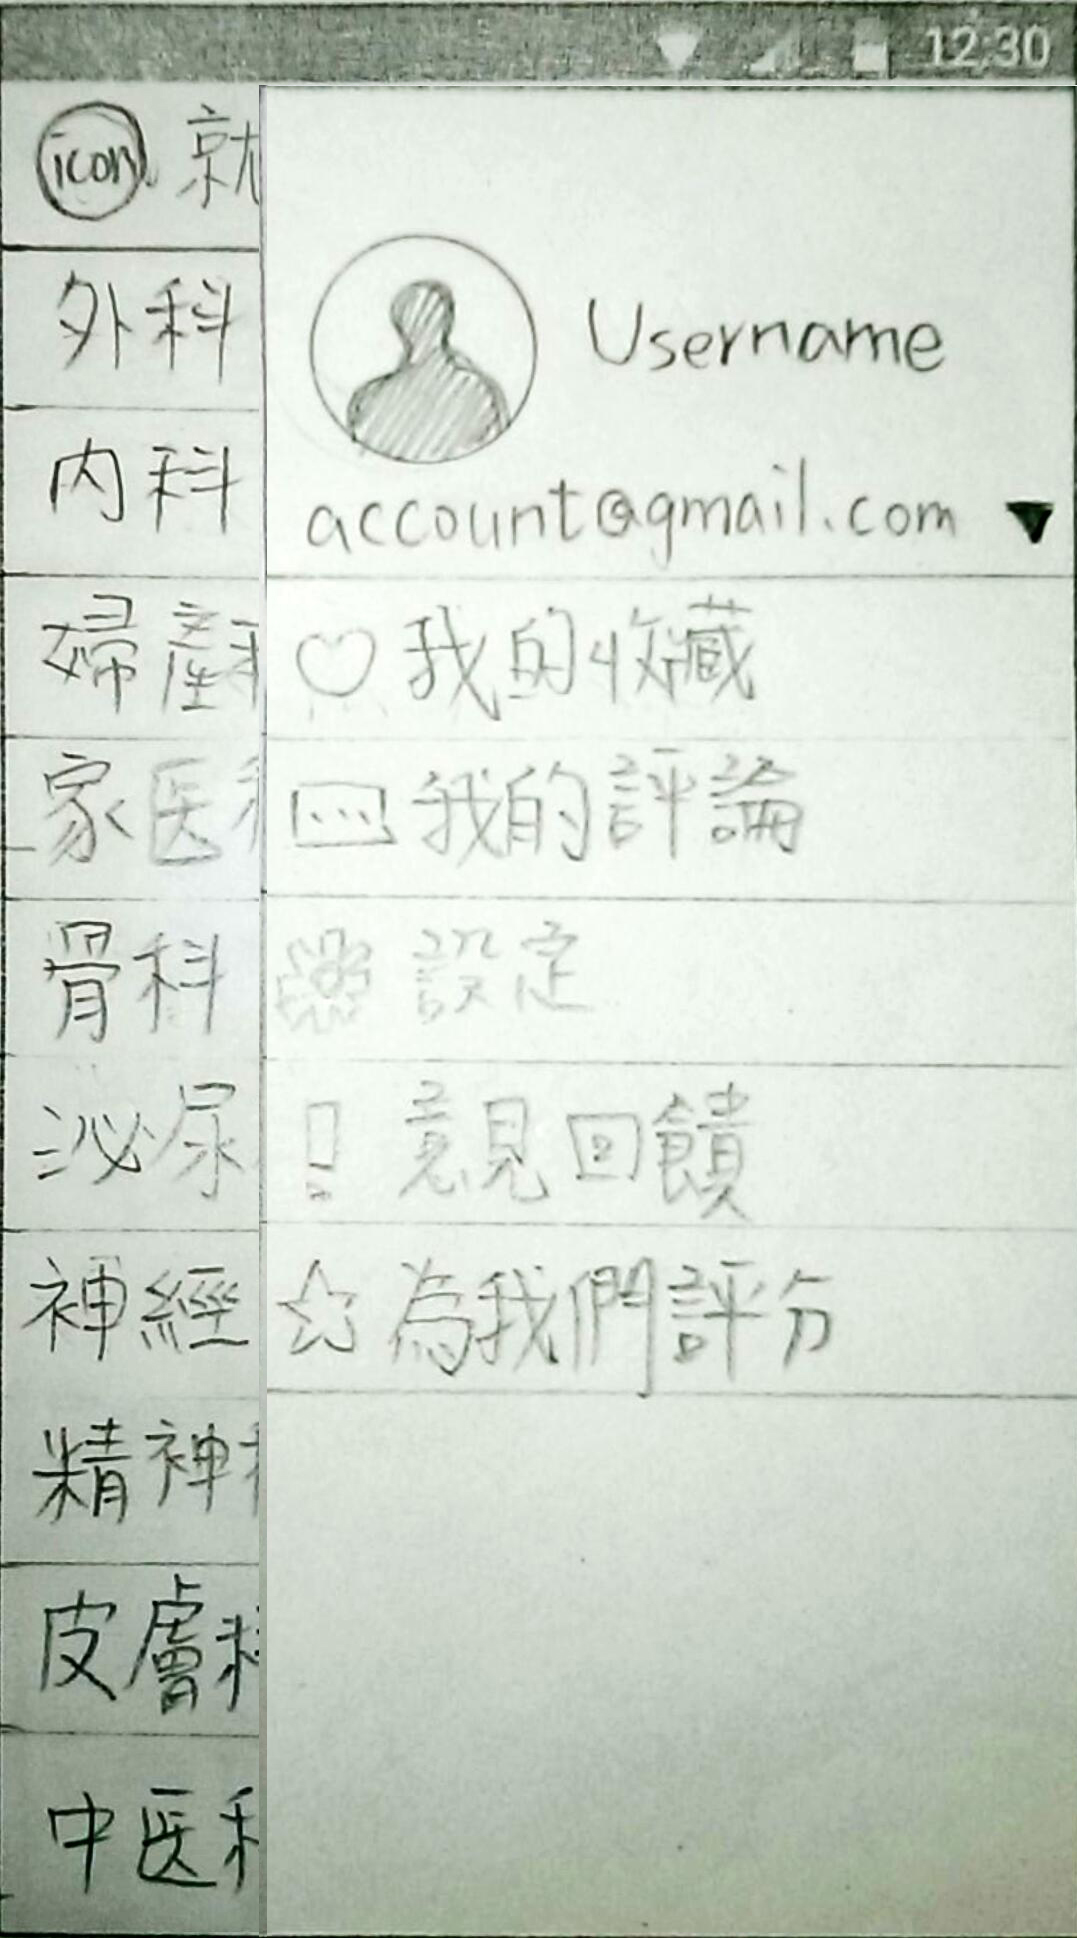 12:30
icon 就
外科
内科
婦產科
家医科
骨科
泌尿
神經
精神科
皮膚科
中医科
Username
account@gmail.com
我的收藏
我的評論
設定
意見回饋
為我們評分